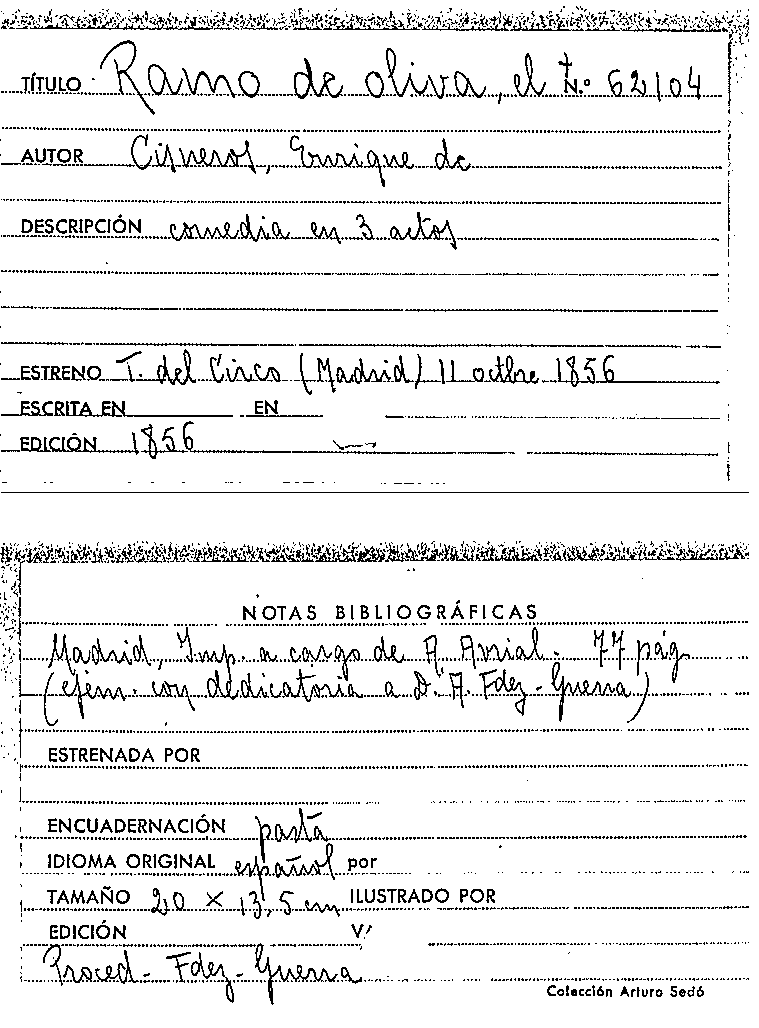 TÍTULO Ramo de oliva, el N.º 62104
AUTOR Cisneros, Enrique de
DESCRIPCIÓN comedia en 3 actos
ESTRENO T. del Circo (Madrid) 11 octbre 1856
ESCRITA EN EN
EDICIÓN 1856
NOTAS BIBLIOGRÁFICAS
Madrid, Imp. a cargo de A. Avrial. 77 pág
(ejem. con dedicatoria a D. A. Fdez-Guerra)
ESTRENADA POR
ENCUADERNACIÓN pasta
IDIOMA ORIGINAL español por
TAMAÑO 20 x 13,5 cm ILUSTRADO POR
EDICIÓN
Proced- Fdez-Guerra
Colección Arturo Sedó